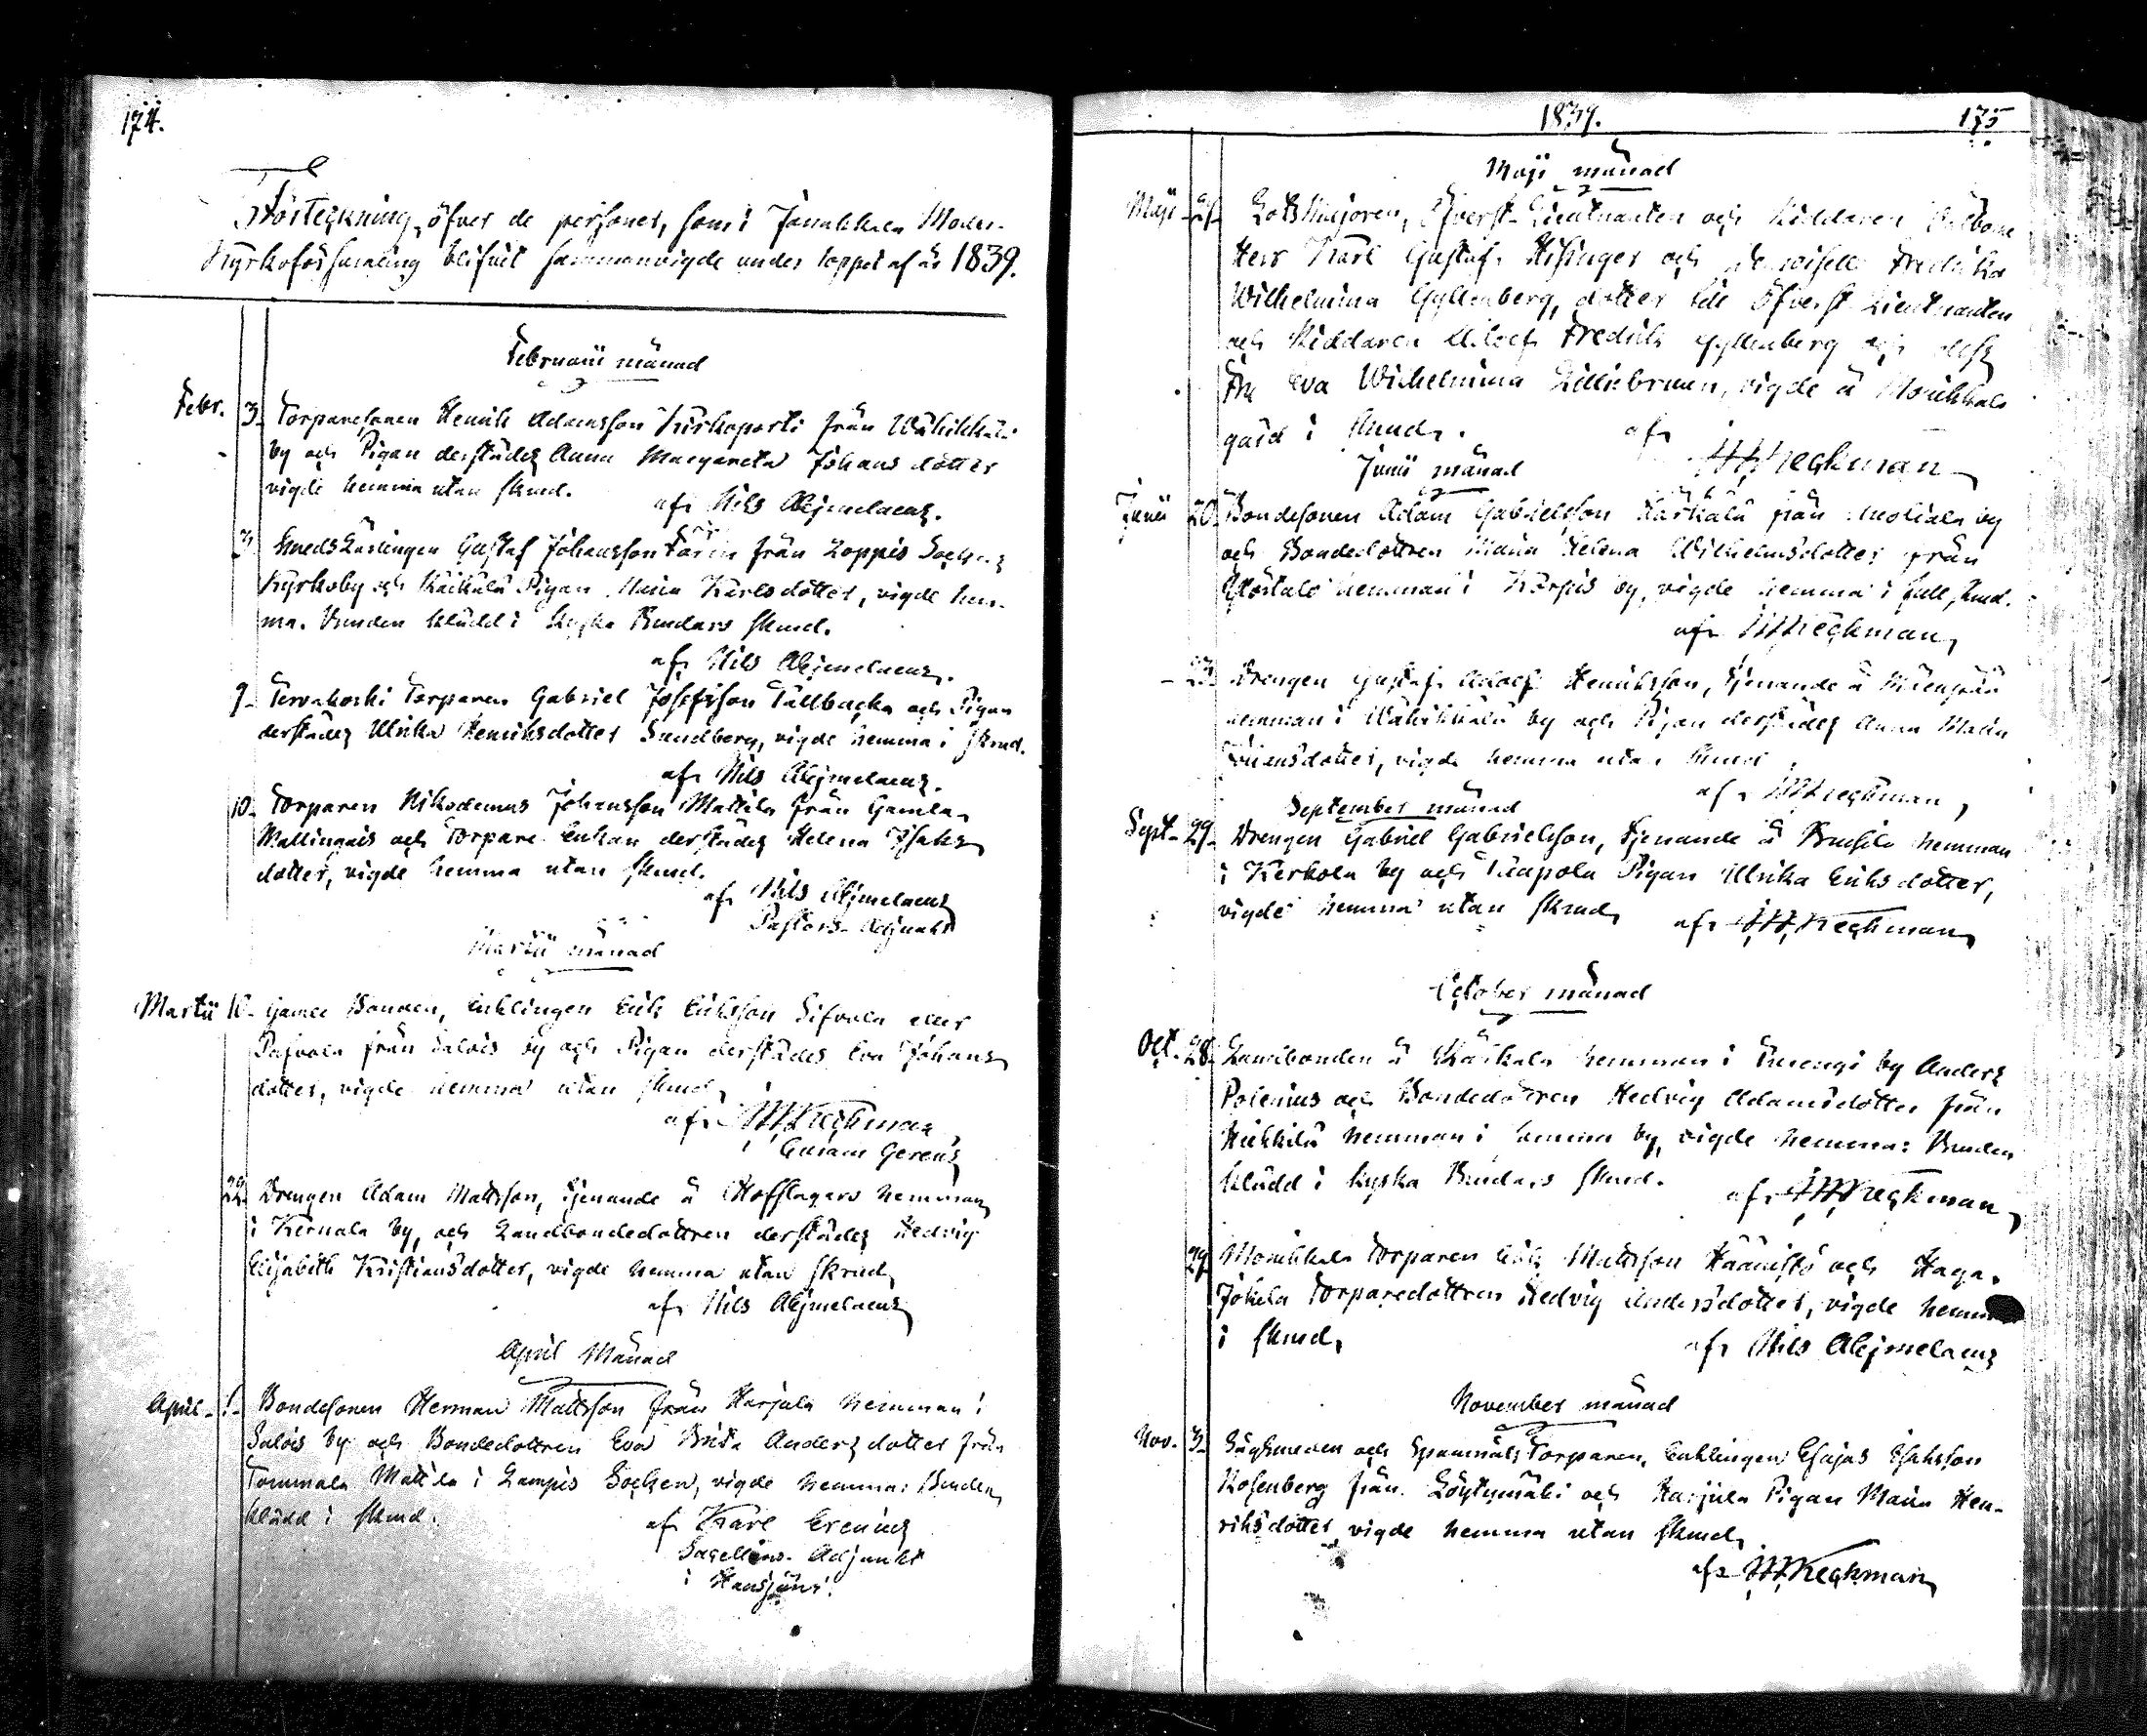 174.
Förteckning öfver de personer, som i Janakkala Moder-
Kyrkoförsamling blifvit sammanvigde under loppet af år 1839.
Februarii månad
Febr. 3. Torparesonen Henrik Adamsson Kiskoparti från Wähikkälä
by och Pigan derstädes Anna Margareta Johansdotter
vigde hemma utan skrud.
af Nils Abjmelaeus.
3. Smeds Lärlingen Gustaf Johansson från Loppis Sockens
Kyrkoby och Räikälä Pigan Maria Karlsdotter, vigde hem-
ma. Bruden klädd i Kyska Brudars skrud.
af Nils Abjmelaeus.
9. Tervakoski Torparen Gabriel Josefsson Tallbacka och Pigan
derstädes Ulrika Henriksdotter Sundberg, vigde hemma i skrud.
af Nils Abjmelaeus.
10. Torparen Nikodemus Johansson Mattila från Gamla
Mallinguis och Torpare Enkan derstädes Helena Isaks
dotter, vigde hemma utan skrud.
af Nils Abjmelaeus
Pastors-Adjunkt
Martii månad
Martii 10. Gamle Bonden, Enklingen Erik Eriksson eller
från Salois by och Pigan derstädes Eva Johans
dotter, vigde hemma utan skrud,
af Keckman
22. Drengen Adam Mattsson, tjenande å Hofslagars hemman
i Kernala by, och Landbondedottren derstädes Hedvig
Elisabeth Kristiansdotter, vigde hemma utan skrud,
af Nils Abjmelaeus
April Månad
April Bondesonen Herman Mattsson från Harjula hemman i
Salois by och Bondedottren Eva Brita Anders dotter från
Tommola Mattila i Lampis Socken, vigde hemma: Bruden
klädd i skrud.
af Karl
Sacellans-Adjunkt
i Hausjärvi.
1839. 175
Maji månad
Maji Öfverst-Lieutnanten och Riddaren
Herr Karl Gustaf Hisinger och Demoiselle Fredrika
Wilhelmina Gyllenberg, dotter till Öfverst Lieutnanten
och Riddaren Adolf Fredrik Gyllenberg och dess
Fru Eva Wilhelmina Lilliebrunn, vigde å Monikkala
gård i skrud.
af Keckman
Junii månad
Junii 20. Bondesonen Adam Gabrielsson Kärkälä från by
och Bondedottren Maria Helena Wilhelmsdotter från
hemman i by, vigde hemma i full skrud.
af Keckman,
23. Drengen Gustaf Adolf Henriksson, tjenande å
hemman i Wähikkälä by och Pigan derstädes Anna Maria
vigde hemma utan skrud
af Keckman,
September månad
Sept. 29. Drengen Gabriel Gabrielsson, tjenande å hemman
i Kerkola by och Pigan Ulrika Eriksdotter,
vigde hemma utan skrud,
af Keckman,
October månad
Oct. 28. Landbonden å hemman i Turengi by Anders
Polenius och Bondedottren Hedvig Adamsdotter från
Heikkilä hemman i samma by, vigde hemma: Bruden
klädd i kyska Brudars skrud.
af Keckman,
29. Monikkala Torparen Erik Mattsson och Haga-
Jokela Torparedottren Hedvig Andersdotter, vigde hemma
i skrud,
af Nils Abjmelaeus
November månad
Nov. 3. och Torparen, Enklingen Esajas Isaksson
Rosenberg från Löytymäki och Harjula Pigan Maria Hen-
riksdotter, vigde hemma utan skrud,
af Keckman,